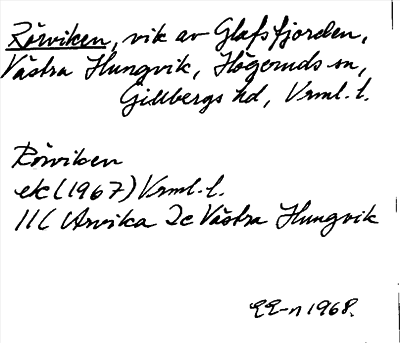 Rörviken, vik av Glafsfjorden,
Västra Hungvik, Högeruds sn,
Gillbergs hd, Vrml. l.
Rörviken
ek (1967) Vrml. l.
11C Arvika 2c Västra Hungvik
EE-n 1968.